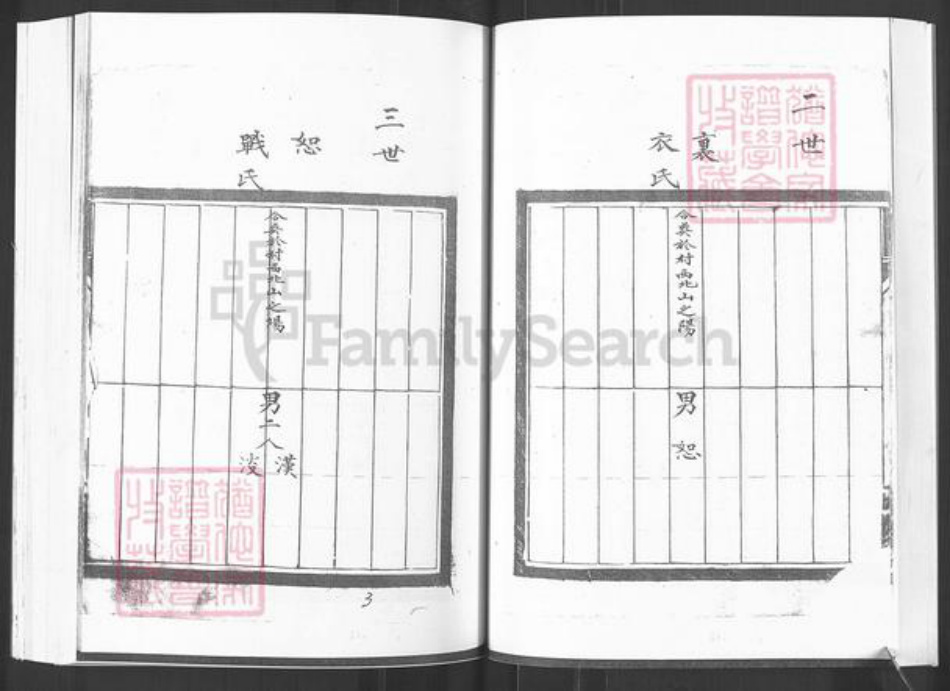 二世
裏
衣氏
合葬於村西北山之陽
男 恕
三世
恕
戰氏
合葬於村西北山之陽
男二人
漢
淩
3
FamilySearch